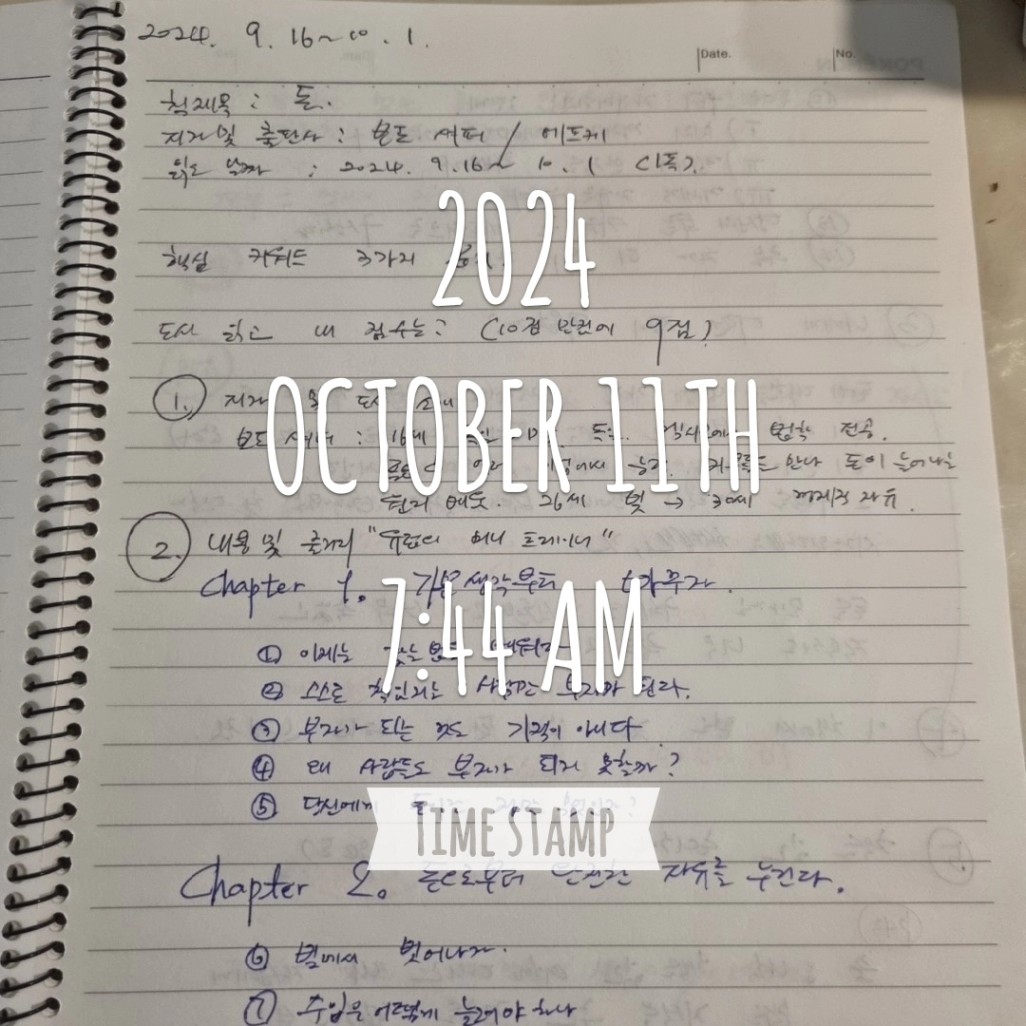 2024. 9. 16~10. 1.
Date.
No.
책제목 : 돈.
저자 및 출판사 : 보도 섀퍼 / 에포케
읽은 날짜 : 2024. 9.16~ 10.1 (1독)
2024
핵심 키워드 3가지
도서 읽고 내 점수는? (10점 만점에 9점)
OCTOBER 11TH
1. 저자 및 도서 소개
보도 섀퍼 : 16세 독일 멕시코에서 법학 전공.
만나 돈이 늘어나는
원리 배움. 26세 빚 → 30세 경제적 자유.
2. 내용 및 줄거리 "유럽의 머니 트레이너"
Chapter 1. 기본 생각부터 바꾸자.
7:44 AM
① 이제는 버는 법을 배워라
② 스스로 책임지는 사람만 부자가 된다.
③ 부자가 되는 것도 기적이 아니다
④ 왜 사람들은 부자가 되지 못할까?
⑤ 당신에게
TIME STAMP
Chapter 2. 돈으로부터 완전한 자유를 누린다.
⑥ 빚에서 벗어나자.
⑦ 수입은 어떻게 늘려야 하나